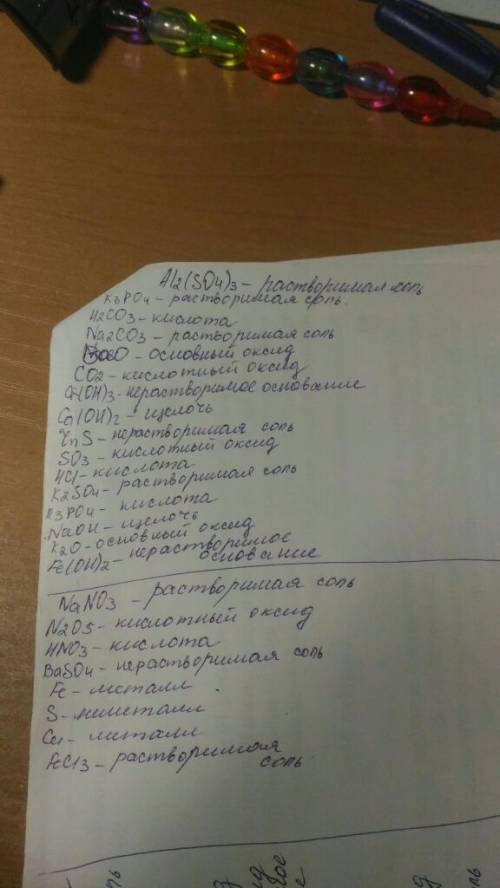 Al2(SO4)3 - растворимая соль
K3PO4 - растворимая соль.
H2CO3 - кислота
Na2CO3 - растворимая соль
BaO - основный оксид
CO2 - кислотный оксид
Cr(OH)3 - нерастворимое основание
Ca(OH)2 - щелочь
ZnS - нерастворимая соль
SO3 - кислотный оксид
HCl - кислота
K2SO4 - растворимая соль
H3PO4 - кислота
NaOH - щелочь
K2O - основный оксид
Fe(OH)2 - нерастворимое
основание
NaNO3 - растворимая соль
N2O5 - кислотный оксид
HNO3 - кислота
BaSO4 - нерастворимая соль
Fe - металл
S - неметалл
Cu - металл
FeCl3 - растворимая
соль